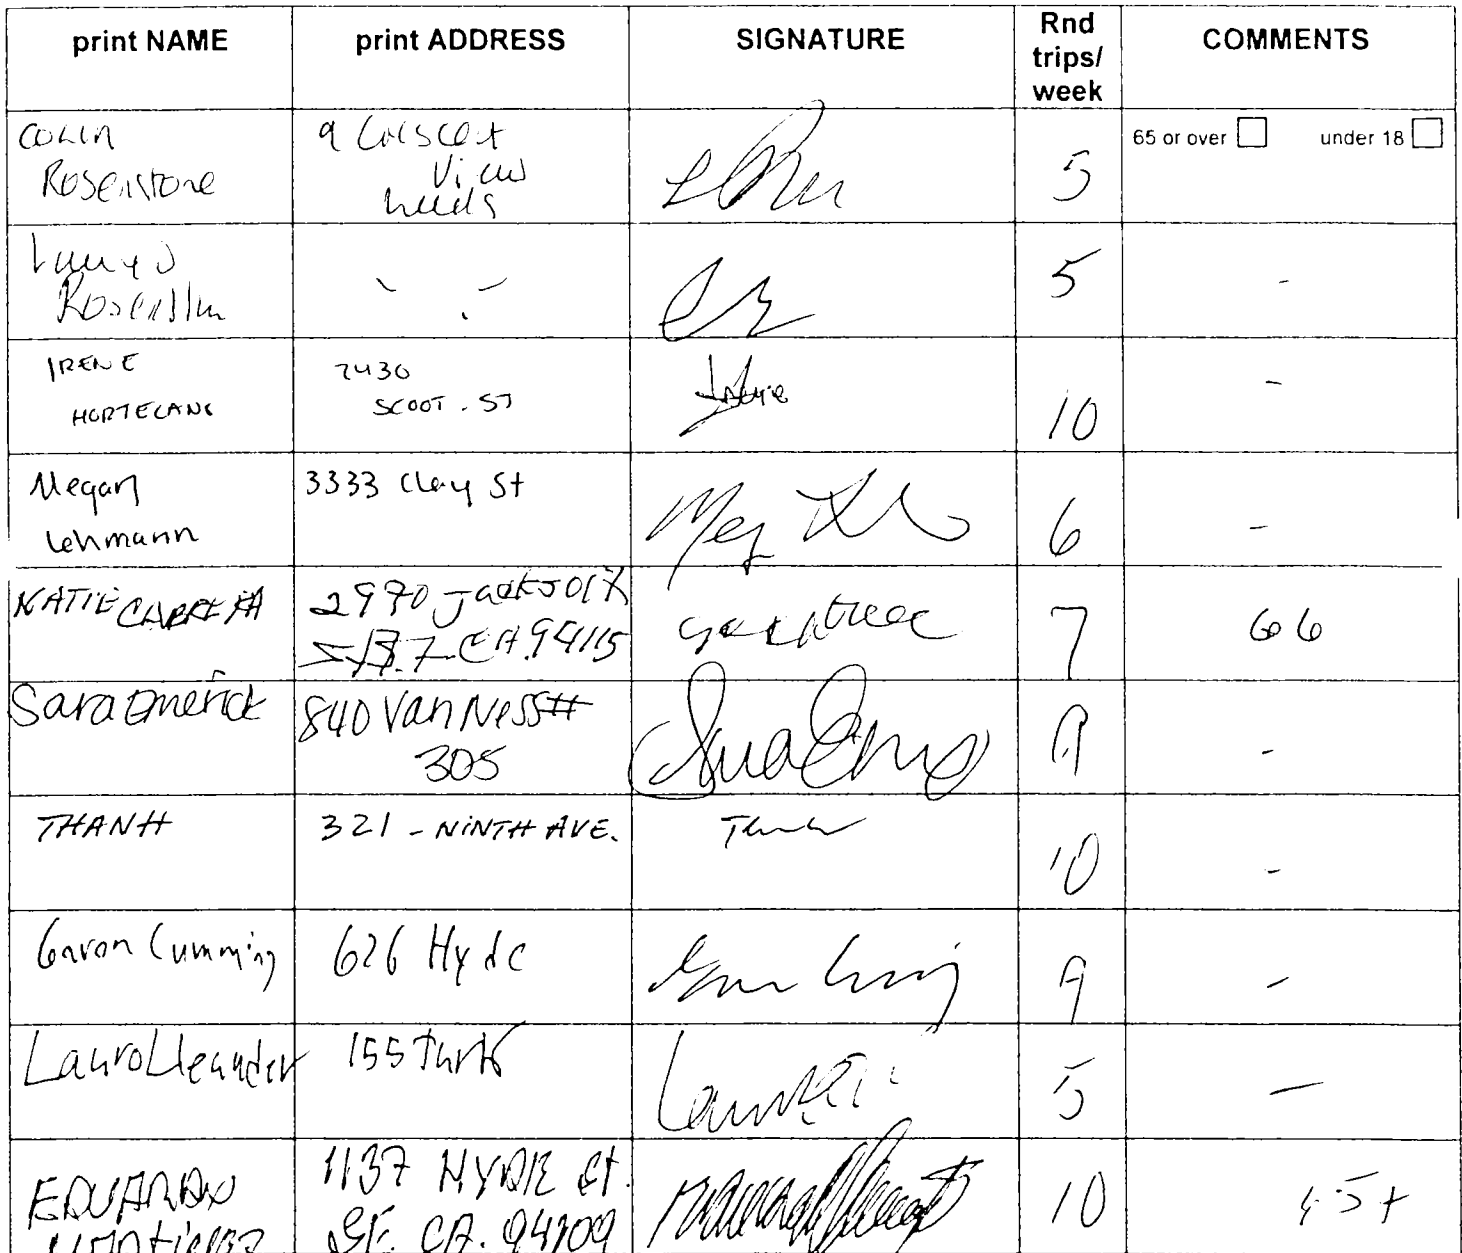 print NAME print ADDRESS SIGNATURE Rnd trips/ week COMMENTS
COLIN
Rosenstone
9 Crescent
View
Leeds
5
65 or over under 18
5
-
IRENE
HORTELANO
2430
SCOOT . ST
10
-
Megan
Lehmann
3333 Clay St
Meg
6
-
KATIE CABRERA
2970 Jackson
CA. 94115
7
66
Sara Emerick
840 Van Ness #
305
9
-
THANH
321 - NINTH AVE.
Thanh
10
-
Garon Cumming
626 Hyde
9
-
Lauro Lleander
155 Turk
5
-
EDUARDO
1137 HYDE St.
SF. CA. 94109
10
65+